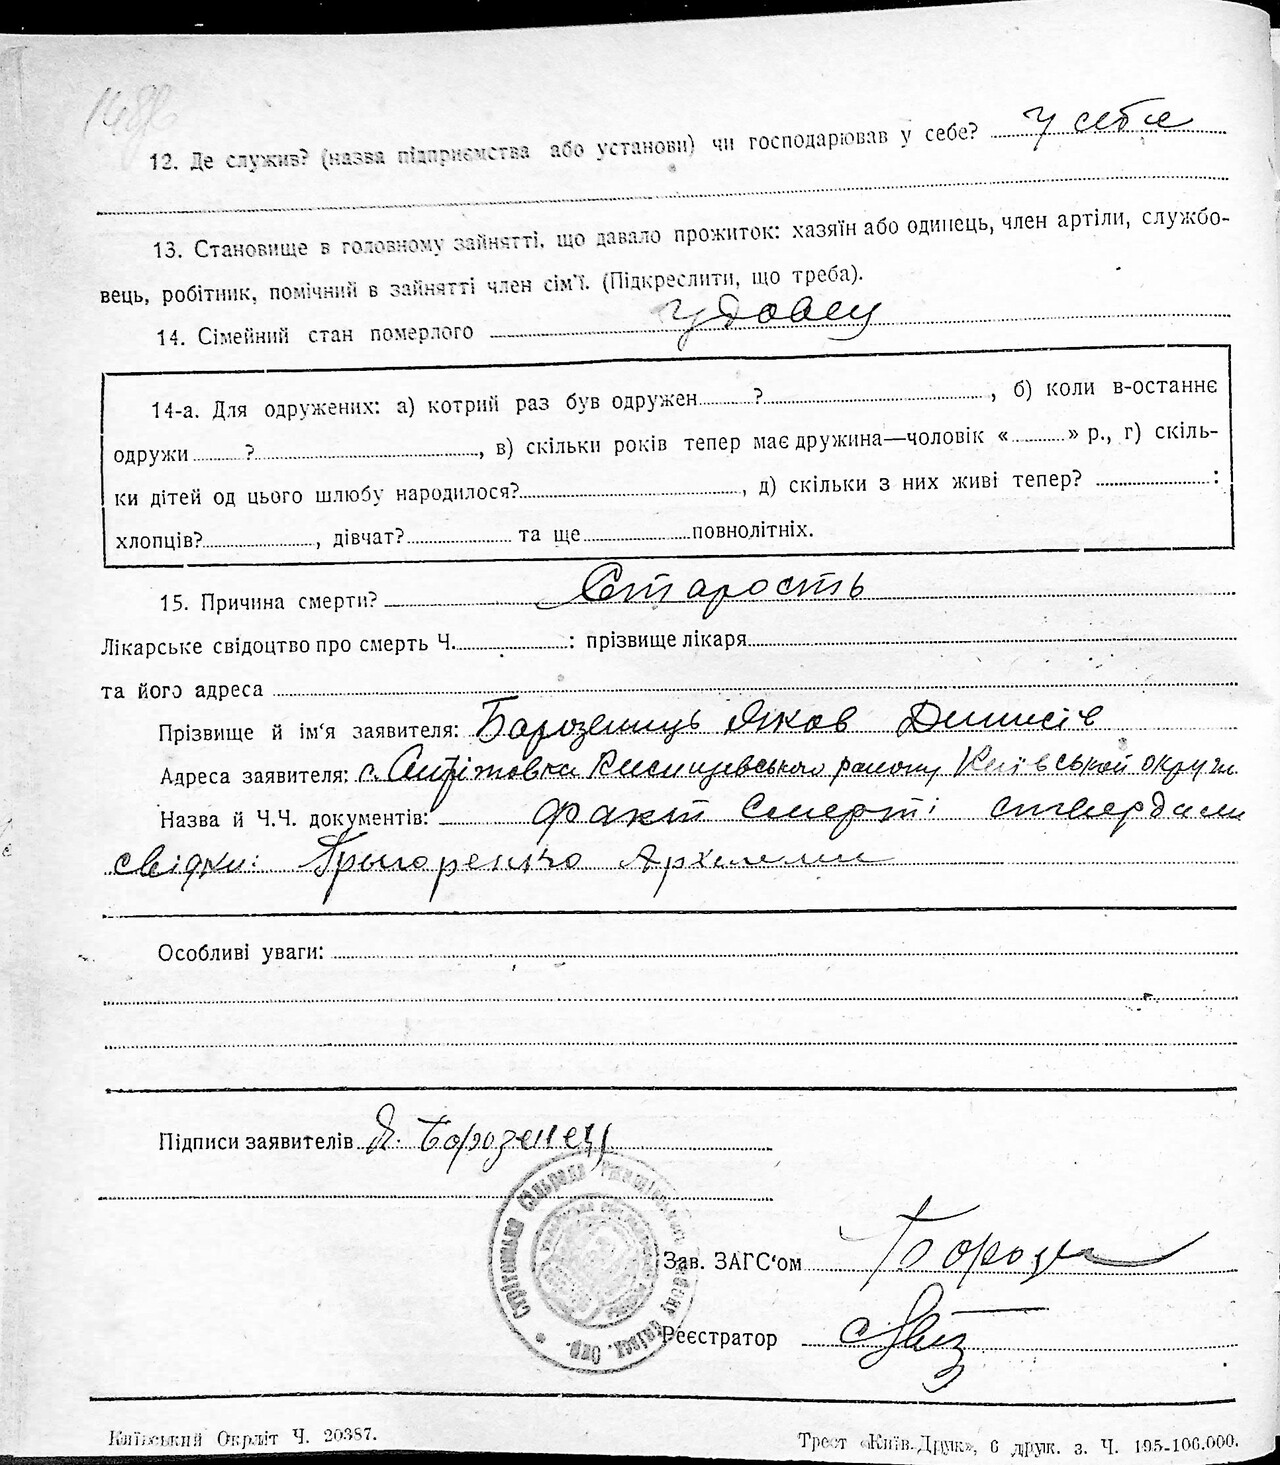 12. Де служив? (назва підприємства або установи) чи господарював у себе? у себе
13. Становище в головному зайнятті, що давало прожиток: хазяїн або одинець, член артіли, службо-
вець, робітник, помічний в зайнятті член сім'ї. (Підкреслити, що треба).
14. Сімейний стан померлого удовец
14-а. Для одружених: а) котрий раз був одружен ? , б) коли в-останнє
одружи ? , в) скільки років тепер має дружина—чоловік « » р., г) скіль-
ки дітей од цього шлюбу народилося? , д) скільки з них живі тепер? :
хлопців? , дівчат? та ще повнолітніх.
15. Причина смерти? Старость
Лікарське свідоцтво про смерть Ч. : прізвище лікаря
та його адреса
Прізвище й ім'я заявителя: Яков Денисів
Адреса заявителя: с. району Київської округи
Назва й Ч.Ч. документів: факт смерті ствердили
свідки: Григоренко
Особливі уваги:
Підписи заявителів Я. Борозенец
Зав. ЗАГС'ом
Реєстратор
Київський Окрліт Ч. 20387.
Трест «Київ-Друк», 6 друк. з. Ч. 195-106.000.